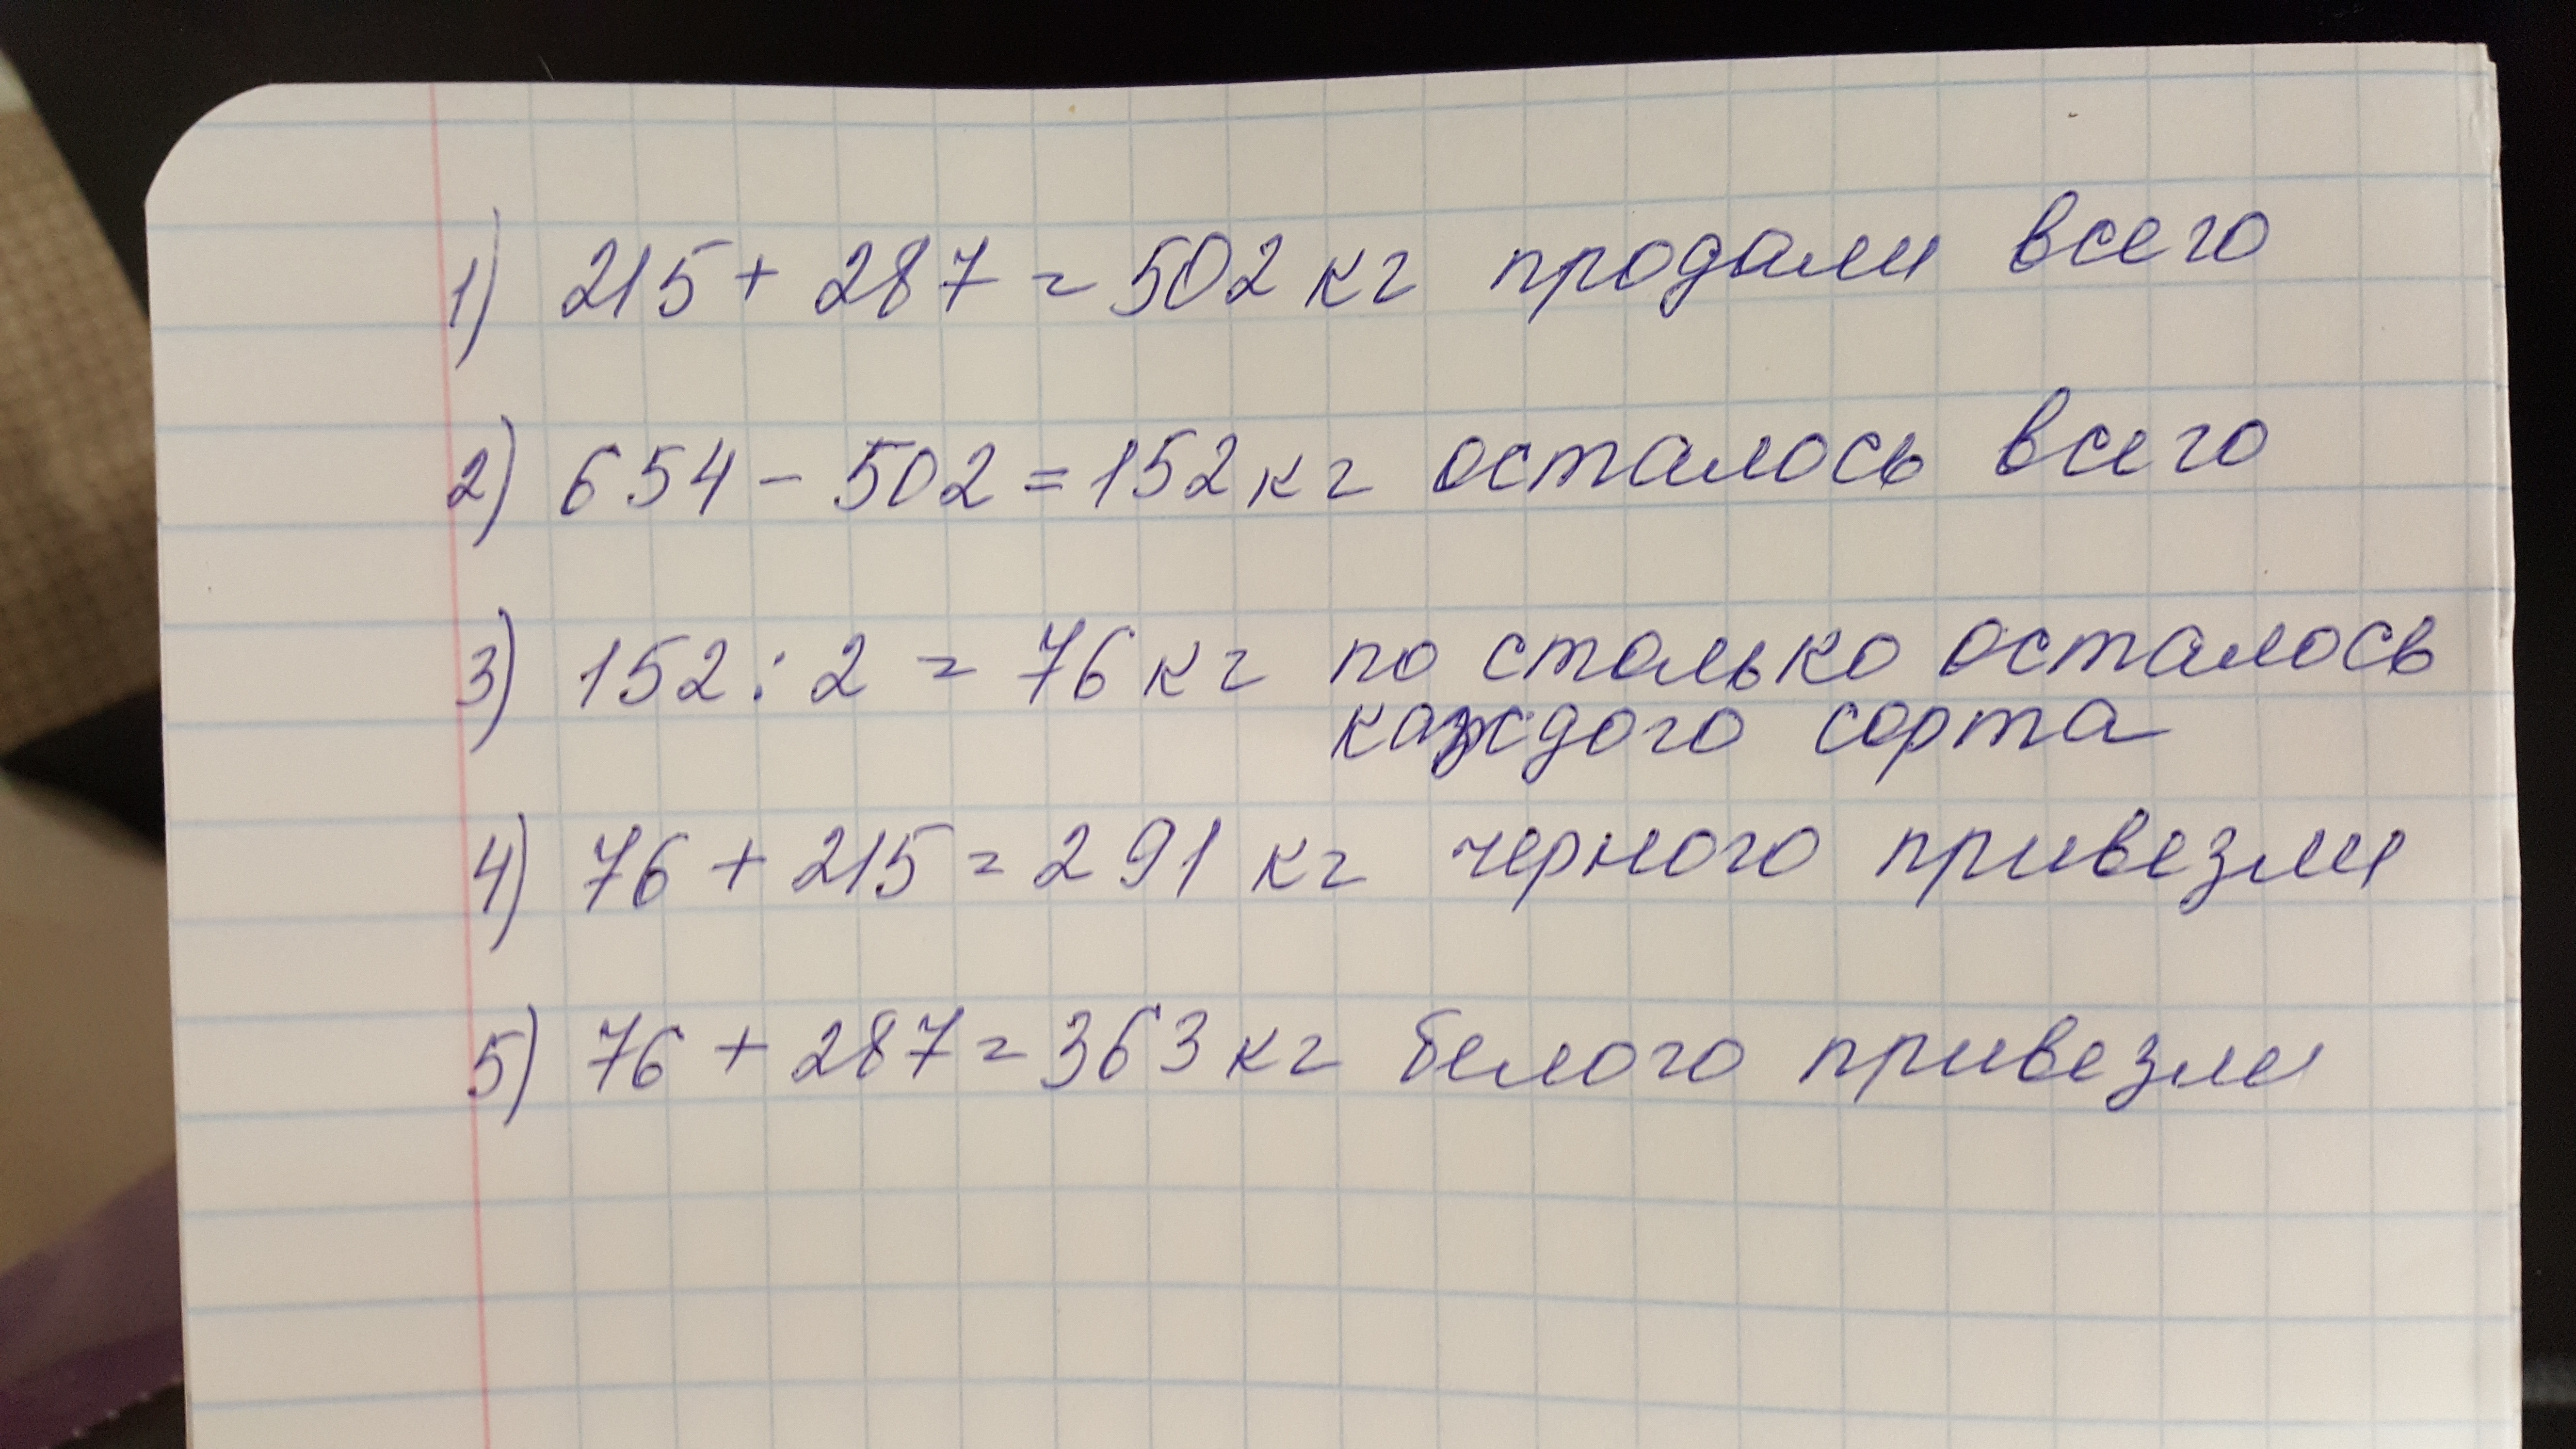 1) 215 + 287 = 502 кг продали всего
2) 654 - 502 = 152 кг осталось всего
3) 152 : 2 = 76 кг по столько осталось
каждого сорта
4) 76 + 215 = 291 кг черного привезли
5) 76 + 287 = 363 кг белого привезли